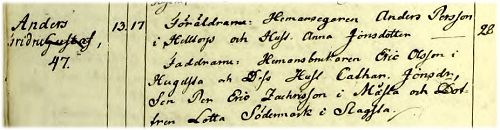 Anders 13. 17 Föräldrarne: Hemansegaren Anders Persson 28
i Helltorp och Hust. Anna Jönsdotter
47. Faddrarne: Hemansbrukaren Eric Olsson i
Hugdsta och Dess Hust Cathar. Jönsdr,
Sen Per Eric Zachrisson i Måsta och Dot
tren Lotta Södermark i Slagsta.